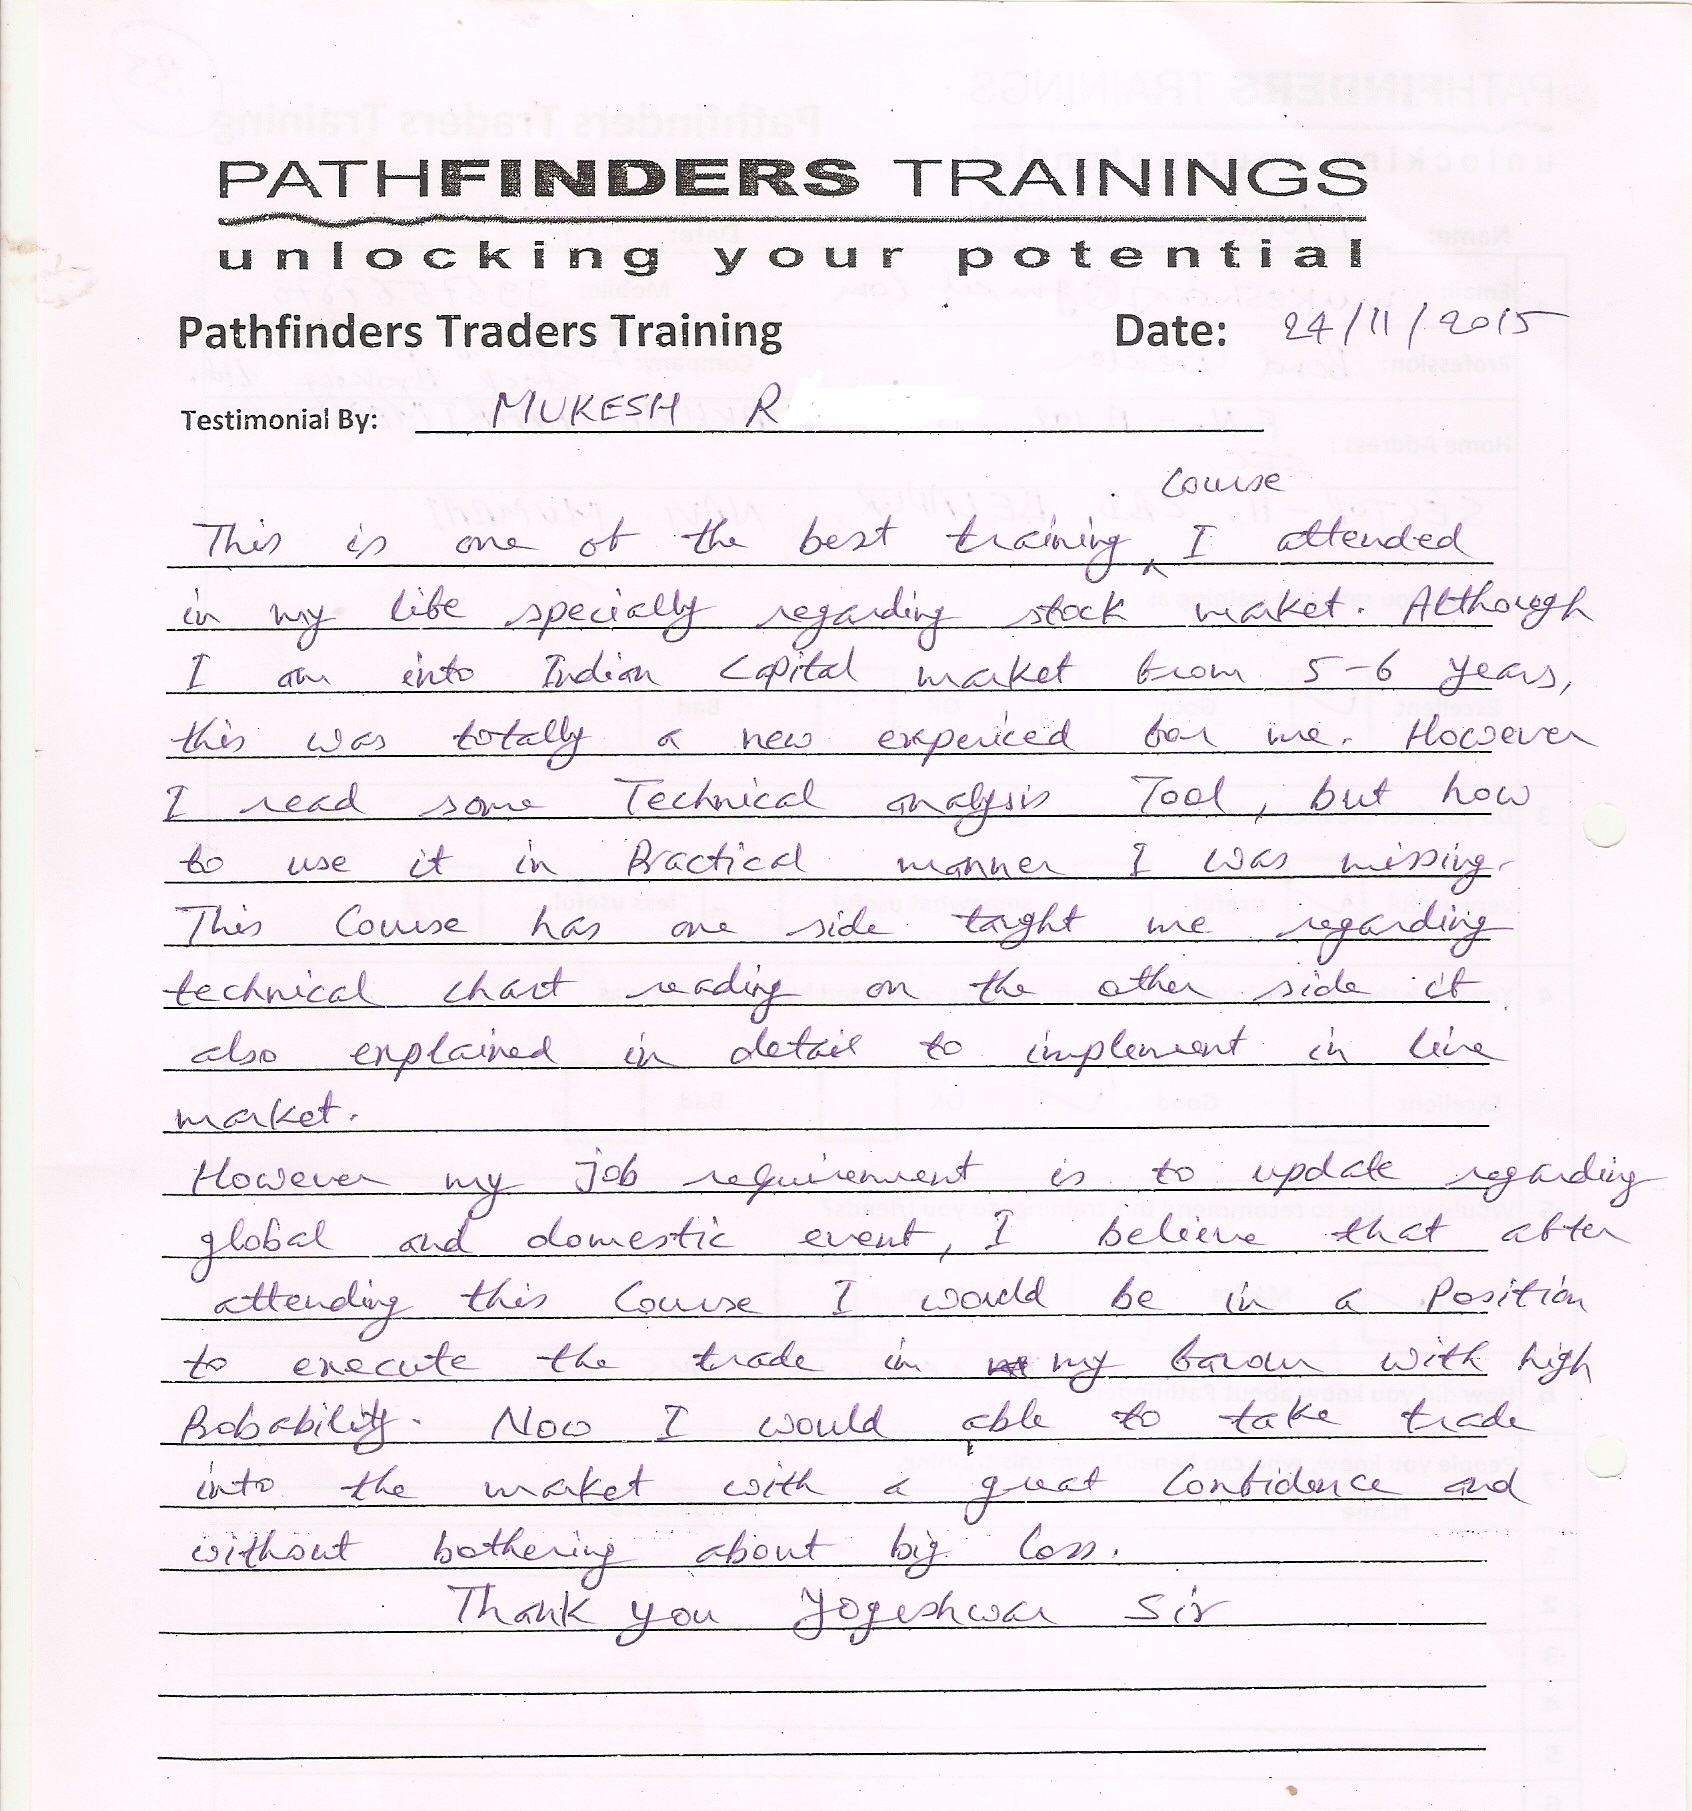 PATHFINDERS TRAININGS
unlocking your potential
Pathfinders Traders Training Date: 24/11/2015
Testimonial By: MUKESH R
Course
This is one of the best training ^ I attended
in my life specially regarding stock market. Although
I am into Indian Capital market from 5-6 years,
this was totally a new expericed for me. However
I read some Technical analysis Tool, but how
to use it in Practical manner I was missing.
This Course has one side taught me regarding
technical chart reading on the other side it
also explained in detail to implement in live
market.
However my job requirement is to update regarding
global and domestic event, I believe that after
attending this Course I would be in a Position
to execute the trade in my favour with high
Probability. Now I would able to take trade
into the market with a great Confidence and
without bothering about big loss.
Thank you Yogeshwar Sir